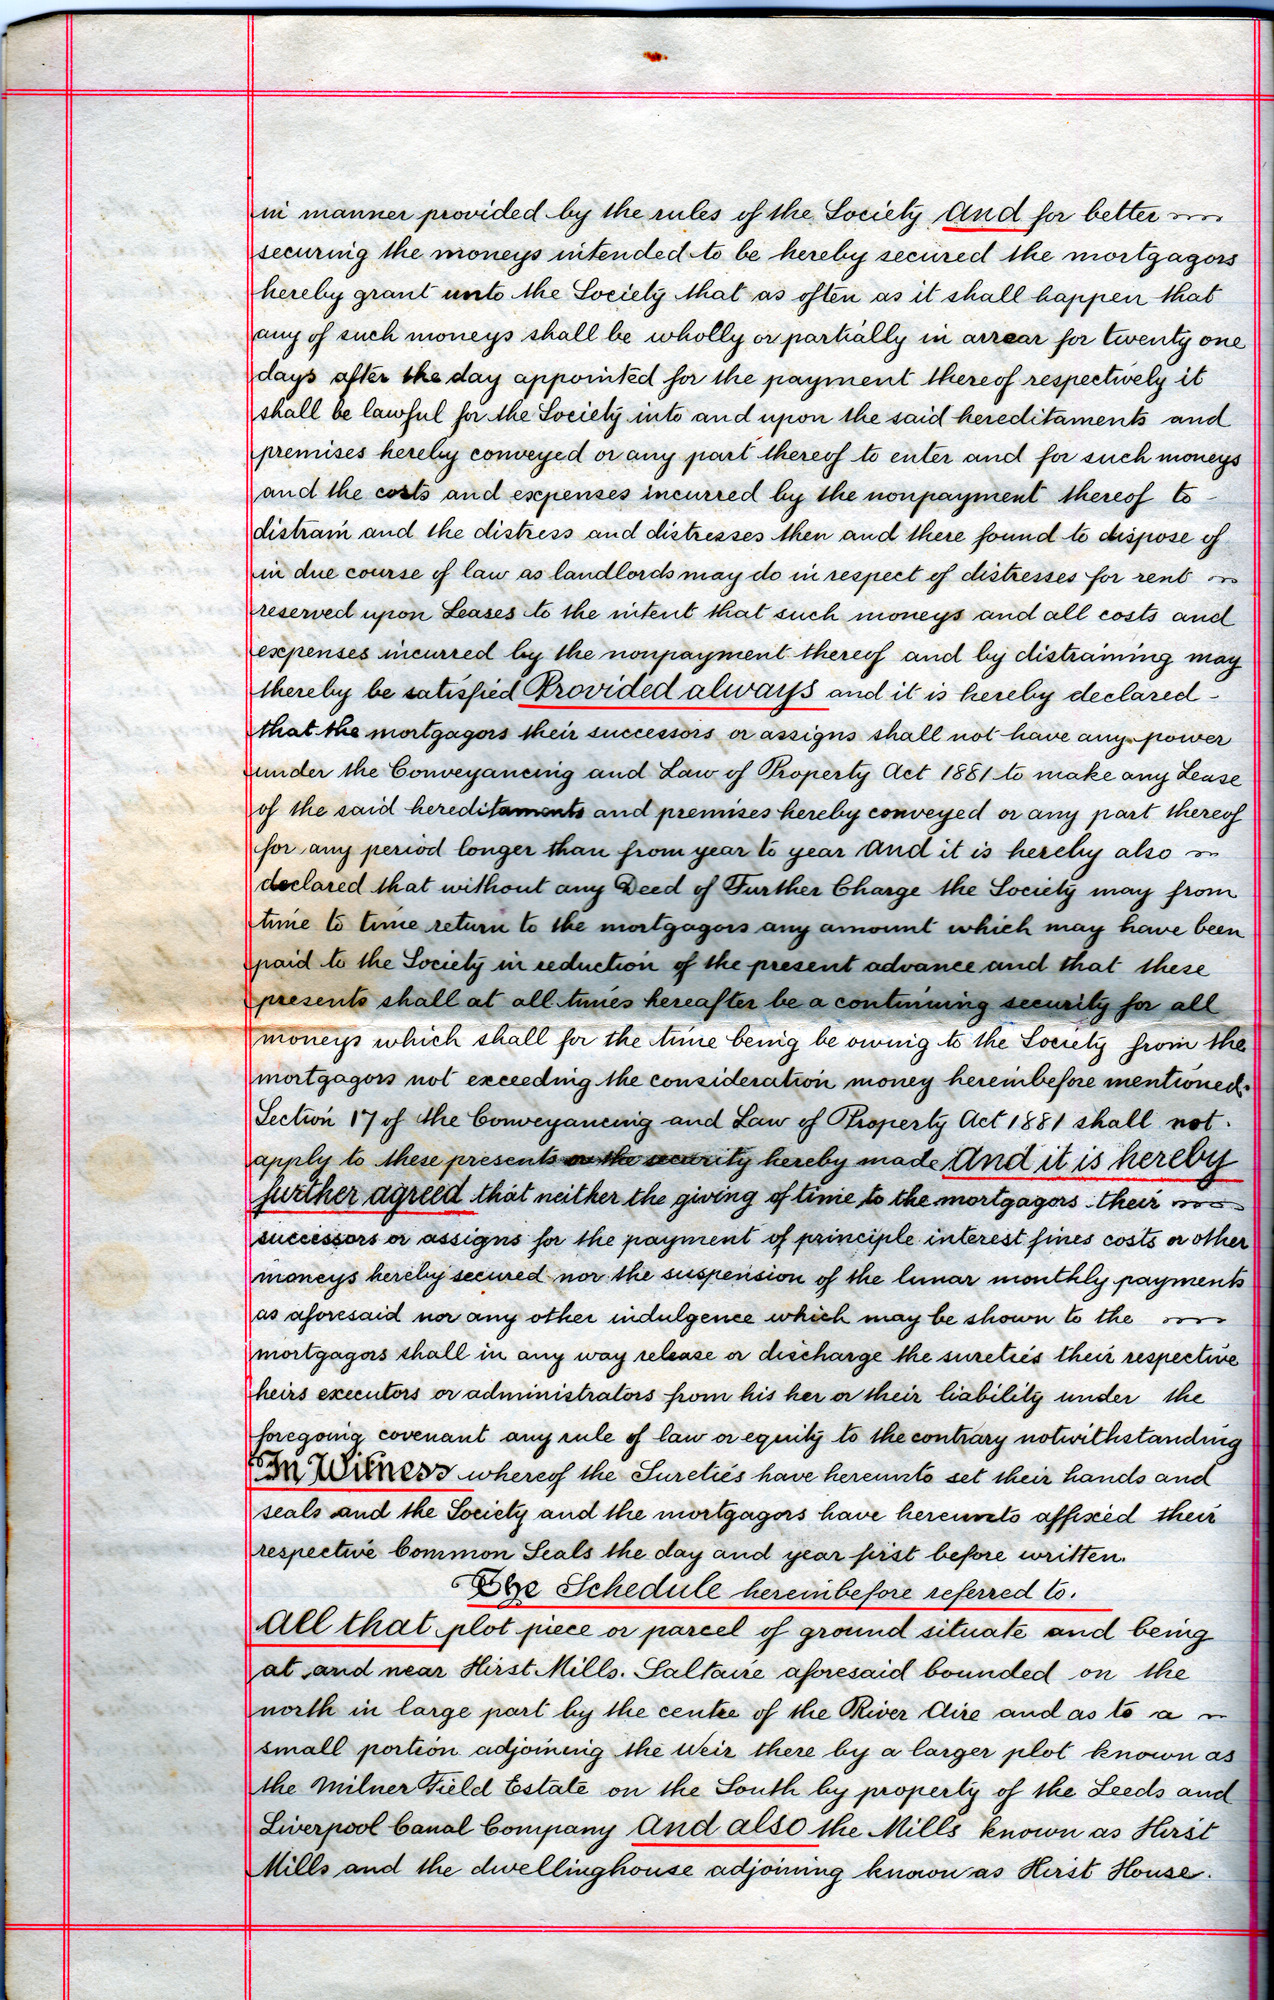 in manner provided by the rules of the Society And for better
securing the moneys intended to be hereby secured the mortgagors
hereby grant unto the Society that as often as it shall happen that
any of such moneys shall be wholly or partially in arrear for twenty one
days after the day appointed for the payment thereof respectively it
shall be lawful for the Society into and upon the said hereditaments and
premises hereby conveyed or any part thereof to enter and for such moneys
and the costs and expenses incurred by the nonpayment thereof to -
distrain and the distress and distresses then and there found to dispose of
in due course of law as landlords may do in respect of distresses for rent
reserved upon Leases to the intent that such moneys and all costs and
expenses incurred by the nonpayment thereof and by distraining may
thereby be satisfied Provided always and it is hereby declared -
that the mortgagors their successors or assigns shall not have any power
under the Conveyancing and Law of Property Act 1881 to make any Lease
of the said hereditaments and premises hereby conveyed or any part thereof
for any period longer than from year to year And it is hereby also
declared that without any Deed of Further Charge the Society may from
time to time return to the mortgagors any amount which may have been
paid to the Society in reduction of the present advance and that these
presents shall at all times hereafter be a continuing security for all
moneys which shall for the time being be owing to the Society from the
mortgagors not exceeding the consideration money hereinbefore mentioned.
Section 17 of the Conveyancing and Law of Property Act 1881 shall not
apply to these presents or the security hereby made And it is hereby
further agreed that neither the giving of time to the mortgagors their
successors or assigns for the payment of principle interest fines costs or other
moneys hereby secured nor the suspension of the lunar monthly payments
as aforesaid nor any other indulgence which may be shown to the
mortgagors shall in any way release or discharge the sureties their respective
heirs executors or administrators from his her or their liability under the
foregoing covenant any rule of law or equity to the contrary notwithstanding
In Witness whereof the Sureties have hereunto set their hands and
seals and the Society and the mortgagors have hereunto affixed their
respective Common Seals the day and year first before written.
The Schedule hereinbefore referred to.
All that plot piece or parcel of ground situate and being
at and near Hirst Mills. Saltaire aforesaid bounded on the
north in large part by the centre of the River Aire and as to a
small portion adjoining the Weir there by a larger plot known as
the Milner Field Estate on the South by property of the Leeds and
Liverpool Canal Company And also the Mills known as Hirst
Mills and the dwellinghouse adjoining known as Hirst House.